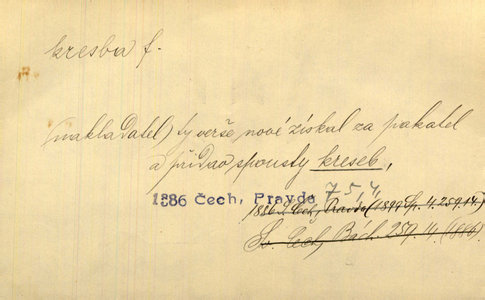 kresba f.
(nakladatel) ty verše nové získal za pakatel
a přidav spousty kreseb,
1886 Čech, Pravda 75,4,
1886 S. Čech, Pravda (1899 Sp. 4. 259.14)
Sv. Čech, Bách. 259. 14. (1886)